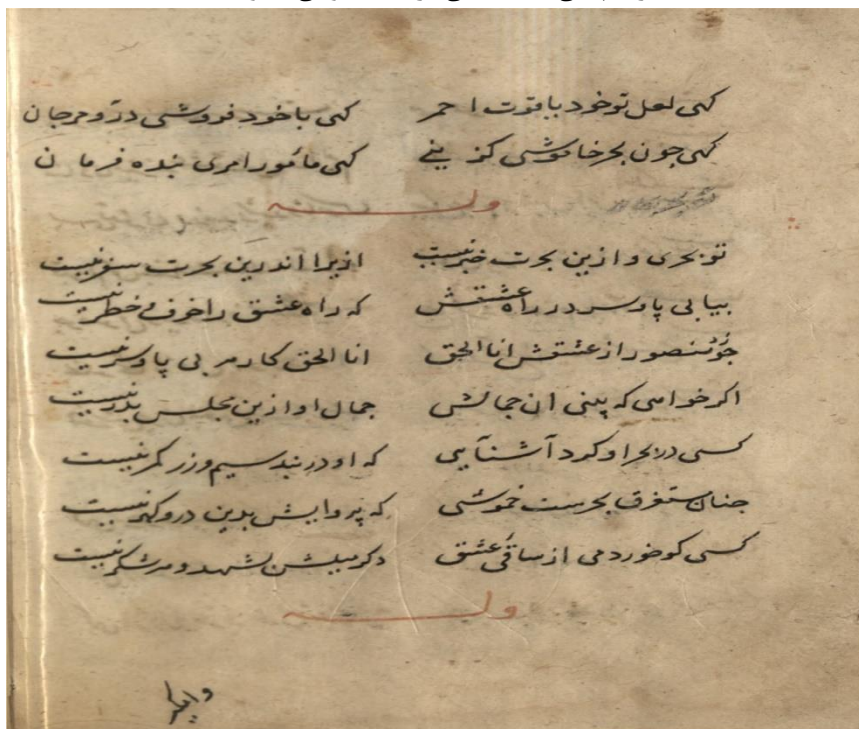 کهی لعل توخود یاقوت احمر کهی باخود فروشی در و مرجان
کهی جون بحر خاموشی کزینے کهی مأمور امری بنده فرمان
وله
تو بحری و ازین بحرت خبر نیست ازیرا اندرین بحرت سفر نیست
بیا بی پا و سر در راه عشقش که راه عشق را خوف و خطر نیست
جو منصور از عشقش انا الحق انا الحق کار مر بی پا و سر نیست
اکر خواهی که بینی ان جمالش جمال او ازین مجلس بدر نیست
کسی در بحر او کرد آشنایی که او در بند سیم و زر کمر نیست
جنان مستغرق بحرست خموشی که پروایش بدین در و کهر نیست
کسی کو خورد می از ساقیٔ عشق دکر میلش بشهد و مر شکر نیست
وله